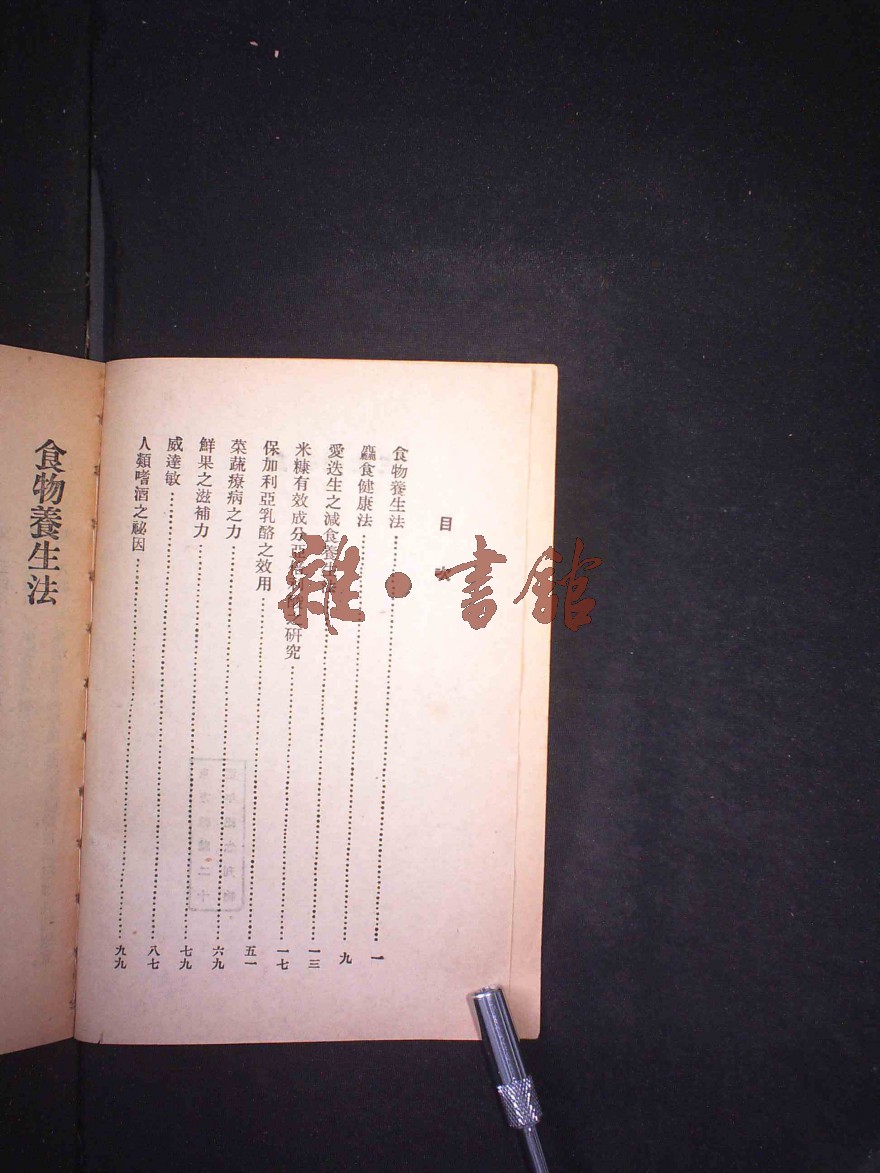 目次
食物養生法 一
麤食健康法 九
愛迭生之減食養生法 一三
米糠有效成分亞 之研究 一七
保加利亞乳酪之效用 五一
菜蔬療病之力 六九
鮮果之滋補力 七九
威達敏 八七
人類嗜酒之祕因 九九
食物養生法
雜·書館